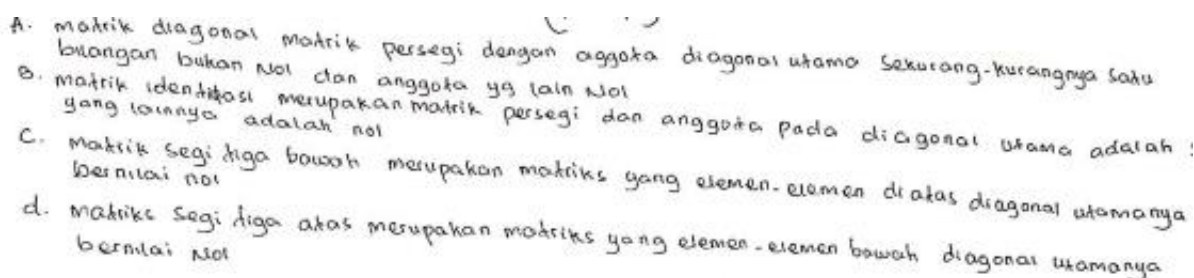 A. matrik diagonal matrik persegi dengan aggota diagonal utama sekurang-kurangnya satu
bilangan bukan Nol dan anggota yg lain Nol
B. matrik identitasi merupakan matrik persegi dan anggota pada diagonal utama adalah
yang lainnya adalah nol
C. Matrik segi tiga bawah merupakan matriks yang elemen-elemen diatas diagonal utamanya
bernilai nol
d. Matriks segi tiga atas merupakan matriks yang elemen-elemen bawah diagonal utamanya
bernilai Nol